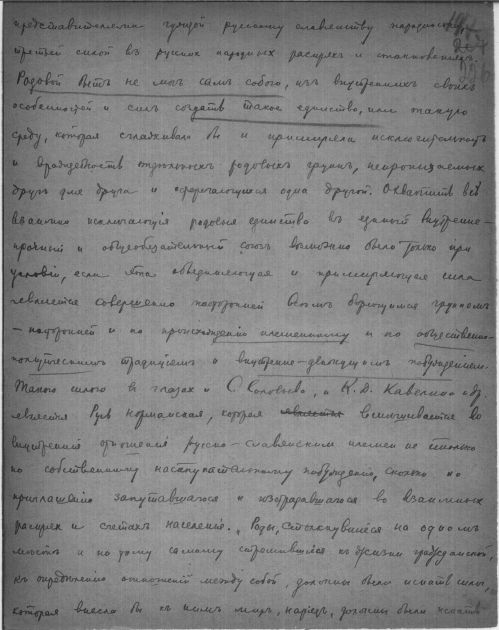 представителями чуждой русскому славянству народности,
третьей силой въ русскихъ народныхъ распряхъ и столкновеніяхъ.
Родовой бытъ не могъ самъ собою, изъ внутреннихъ своихъ
особенностей и силъ создать такое единство, или такую
среду, которая сглаживала бы и примиряла исключительность
и враждебность отдѣльныхъ родовыхъ группъ, непроницаемыхъ
другъ для друга и одна другой. Охватить всѣ
взаимно исключающія родовыя единства въ единый внутренне-
прочный и общеобязательный союзъ возможно было только при
условіи, если эта объединяющая и примиряющая сила
является совершенно посторонней всѣмъ борющимся группамъ
– посторонней и по происхожденію племенному и по общественно-
политическимъ традиціямъ и внутренне-движущимъ побужденіямъ.
Такою силою въ глазахъ и С. Соловьева, и К. Д. Кавелина
является Русь Норманская, которая вмѣшивается во
внутреннія отношенія русско-славянскихъ племенъ не столько
по собственному наступательному побужденію, сколько по
приглашенію запутавшагося и изстрадавшагося во взаимныхъ
распряхъ и счетахъ населенія. „Роды, столкнувшіеся на одномъ
мѣстѣ и по тому самому стремившіеся къ жизни гражданской,
къ опредѣленію отношеній между собой, должны были искать силы,
которая внесла бы къ нимъ миръ, нарядъ, должны были искать